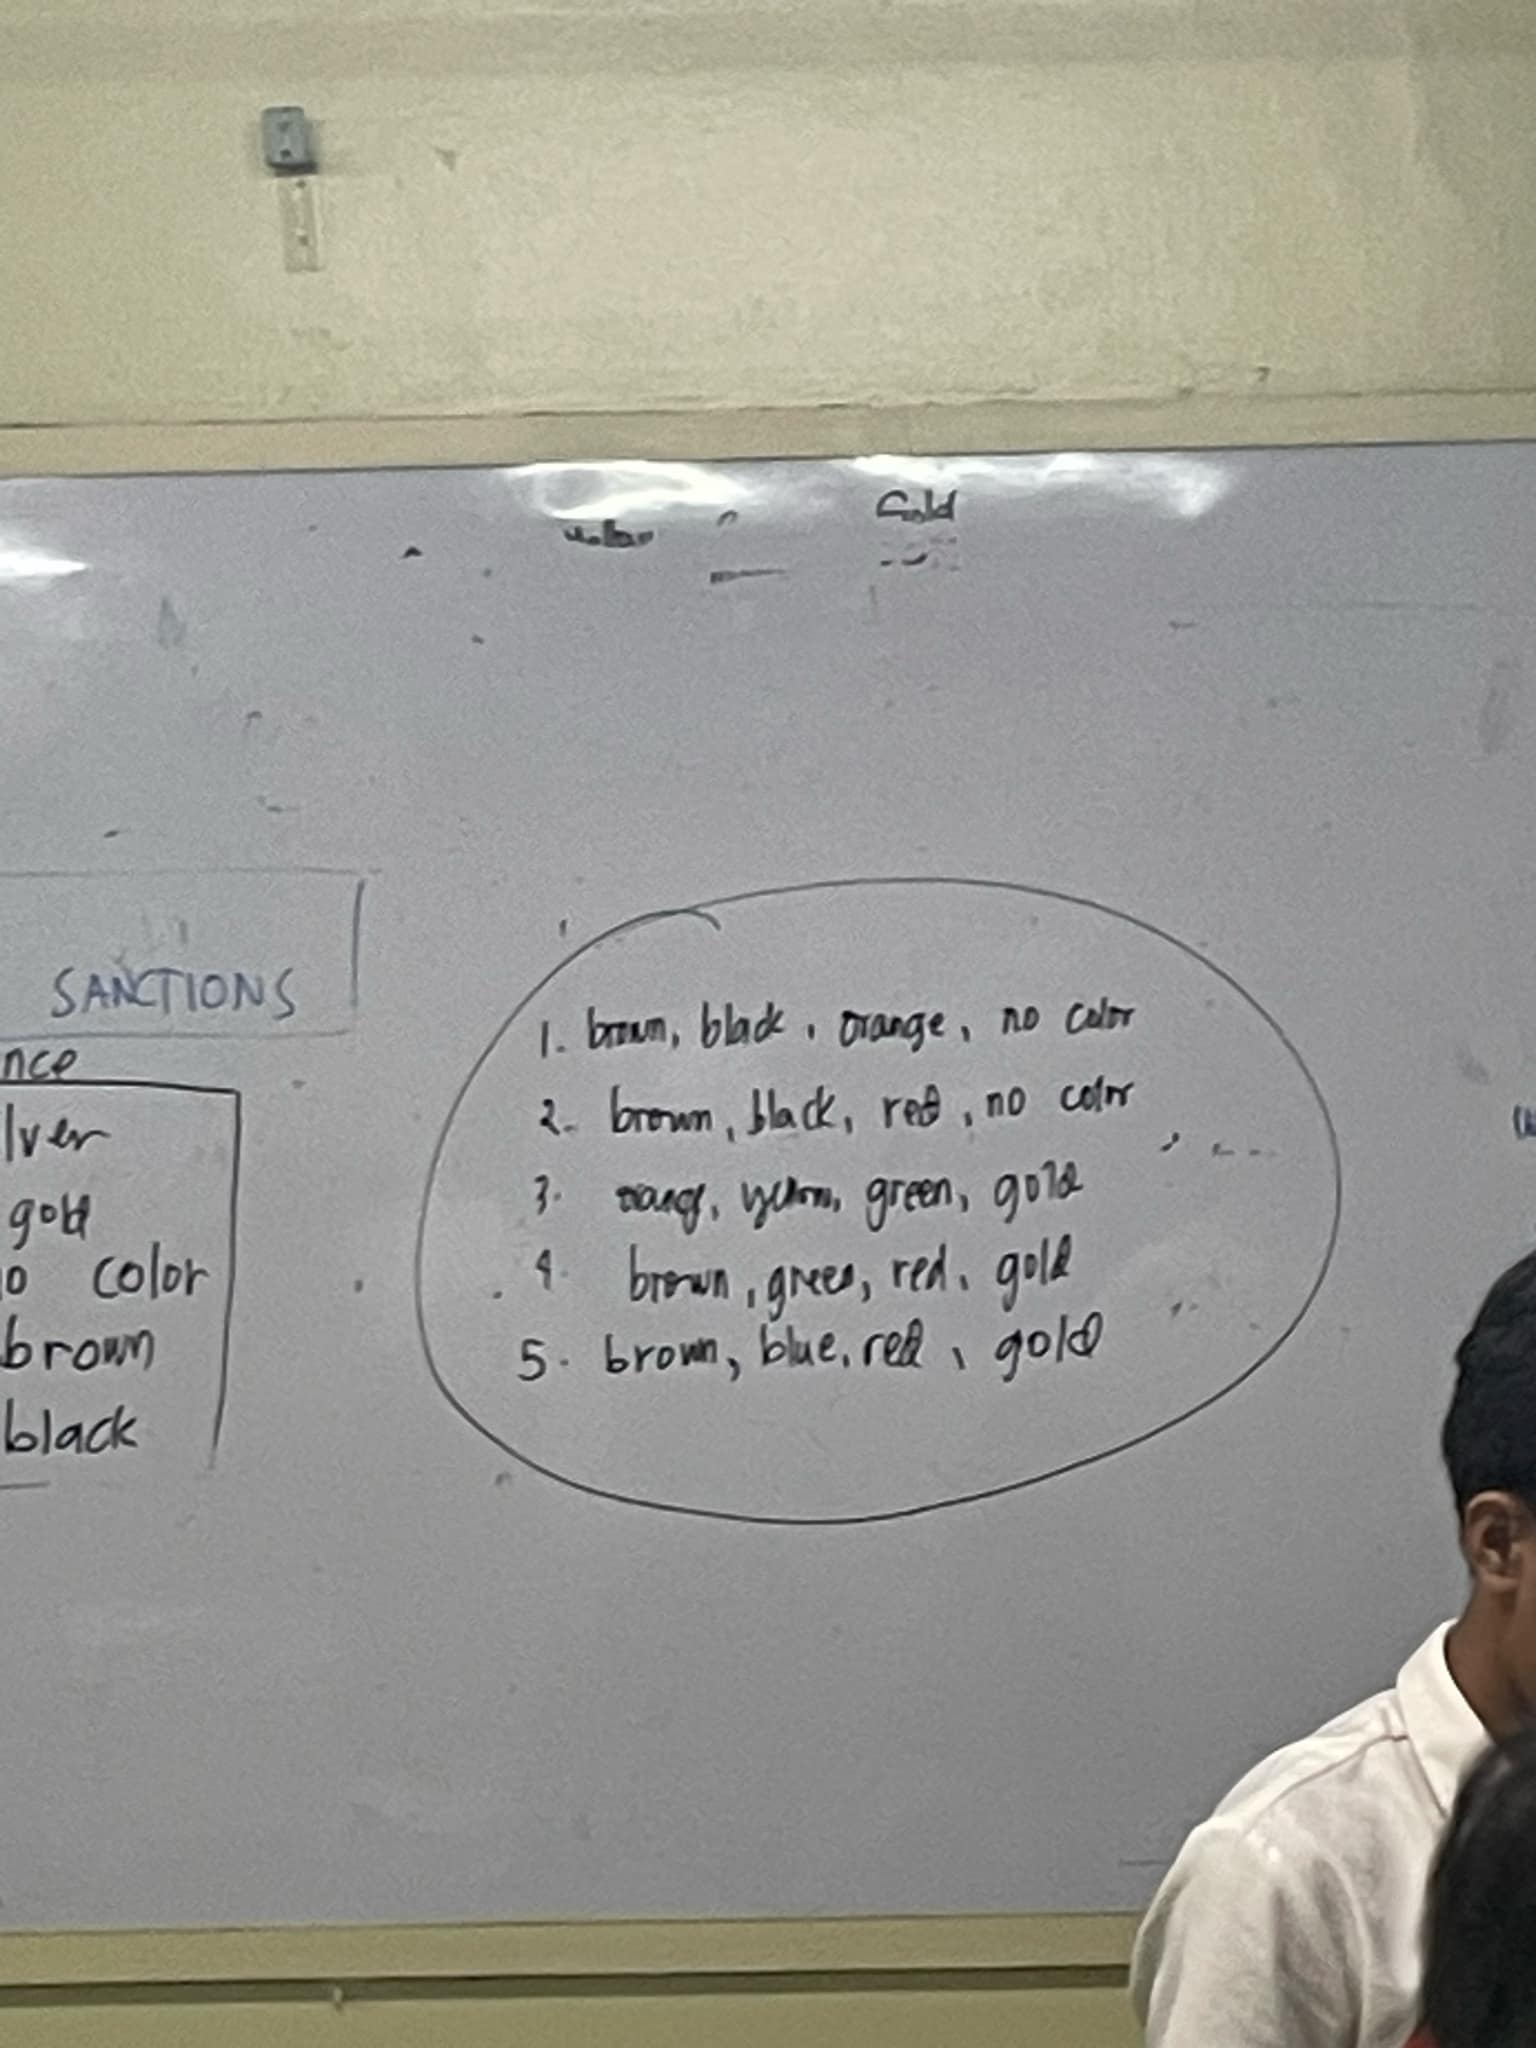 Gold
SANCTIONS
nce
lver
gold
o color
brown
black
1. brown, black, orange, no color
2. brown, black, red, no color
3. orange, yellow, green, gold
4. brown, green, red, gold
5. brown, blue, red, gold